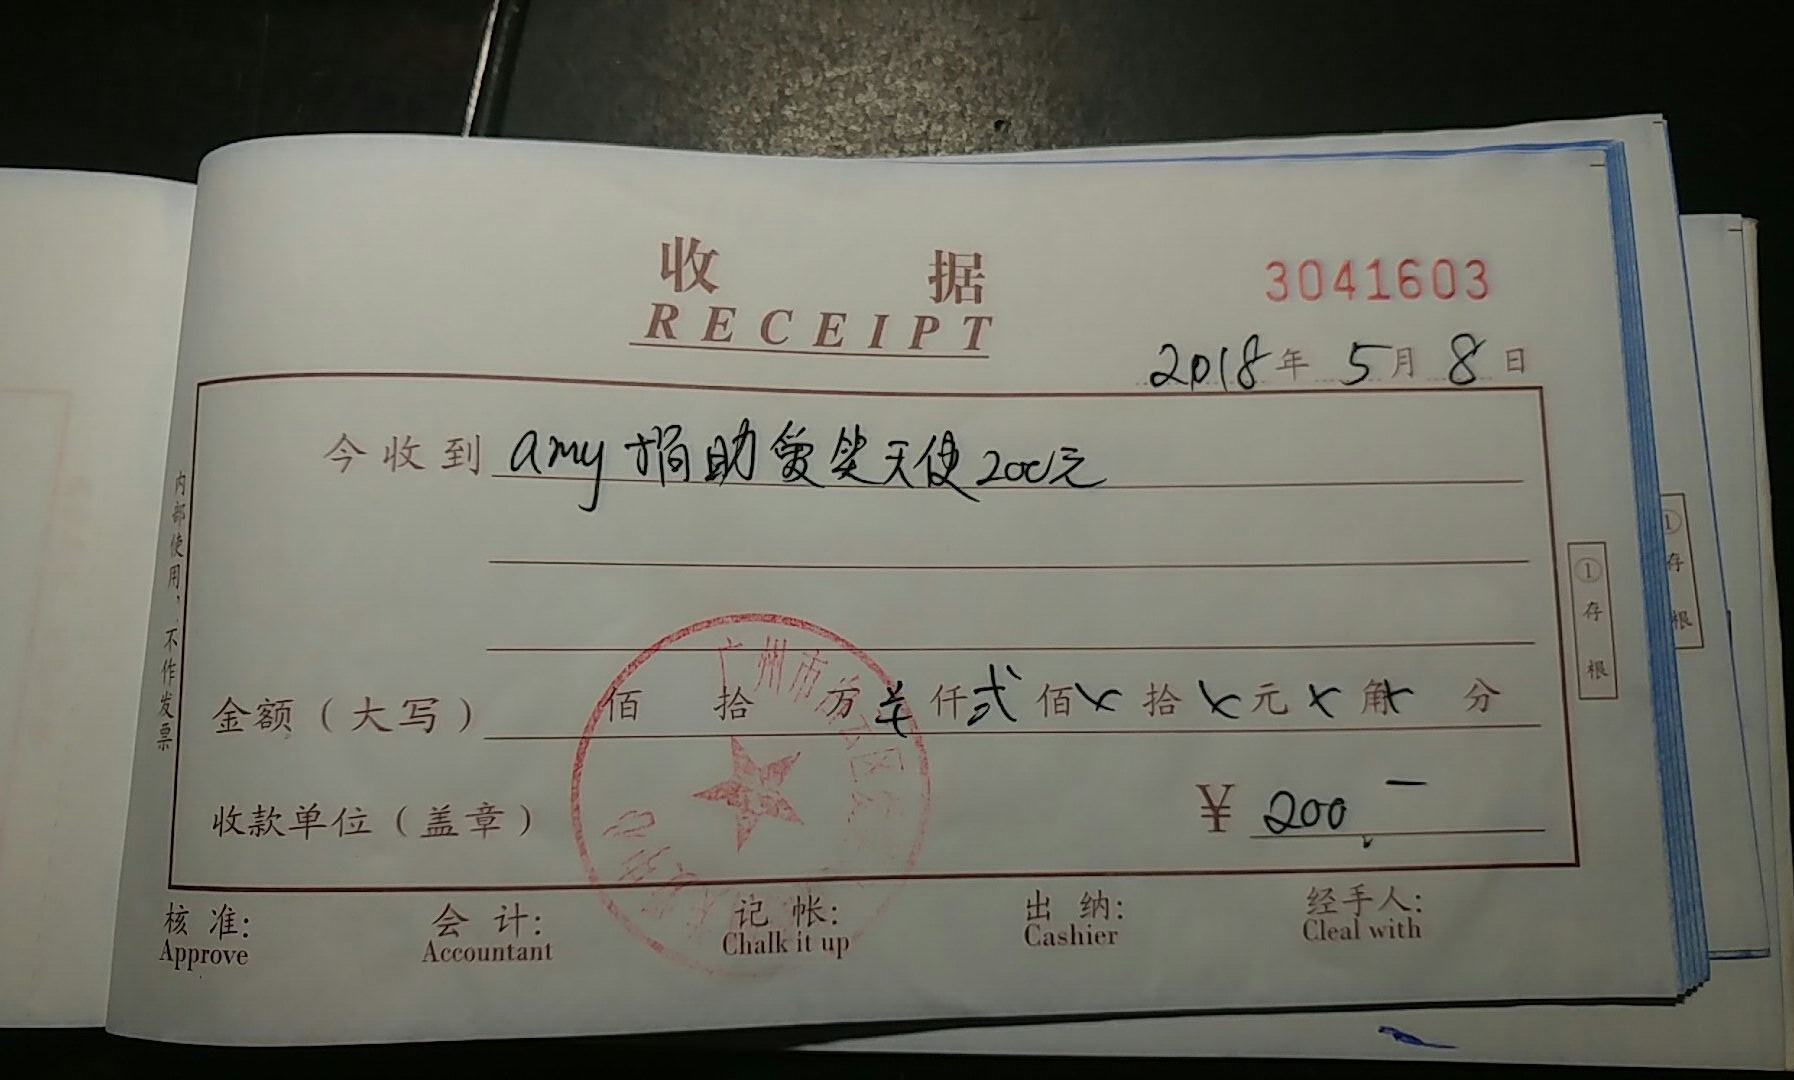 收 据
RECEIPT
3041603
2018年5月8日
今收到 amy 捐助爱笑天使200元
金额（大写） 佰 拾 万 羊 仟 弍 佰 x 拾 x 元 x 角 x 分
收款单位（盖章） ¥ 200.-
核 准: 会 计: 记 帐: 出 纳: 经手人:
Approve Accountant Chalk it up Cashier Cleal with
内部使用，不作发票
① 存根
① 存根
广州市